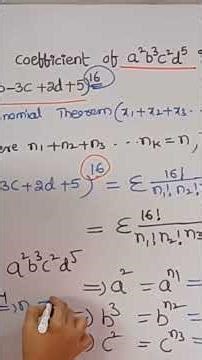 coefficient of a²b³c²d⁵
b-3c+2d+5)¹⁶
nomial Theorem (x₁+x₂+x₃...
ere n₁+n₂+n₃...nₖ=n,
3c+2d+5)¹⁶ = Σ 16! / n₁! n₂!
= Σ 16! / n₁! n₂! n₃
a²b³c²d⁵
⇒ a² = a^n₁
⇒ b³ = b^n₂
⇒ c² = c^n₃